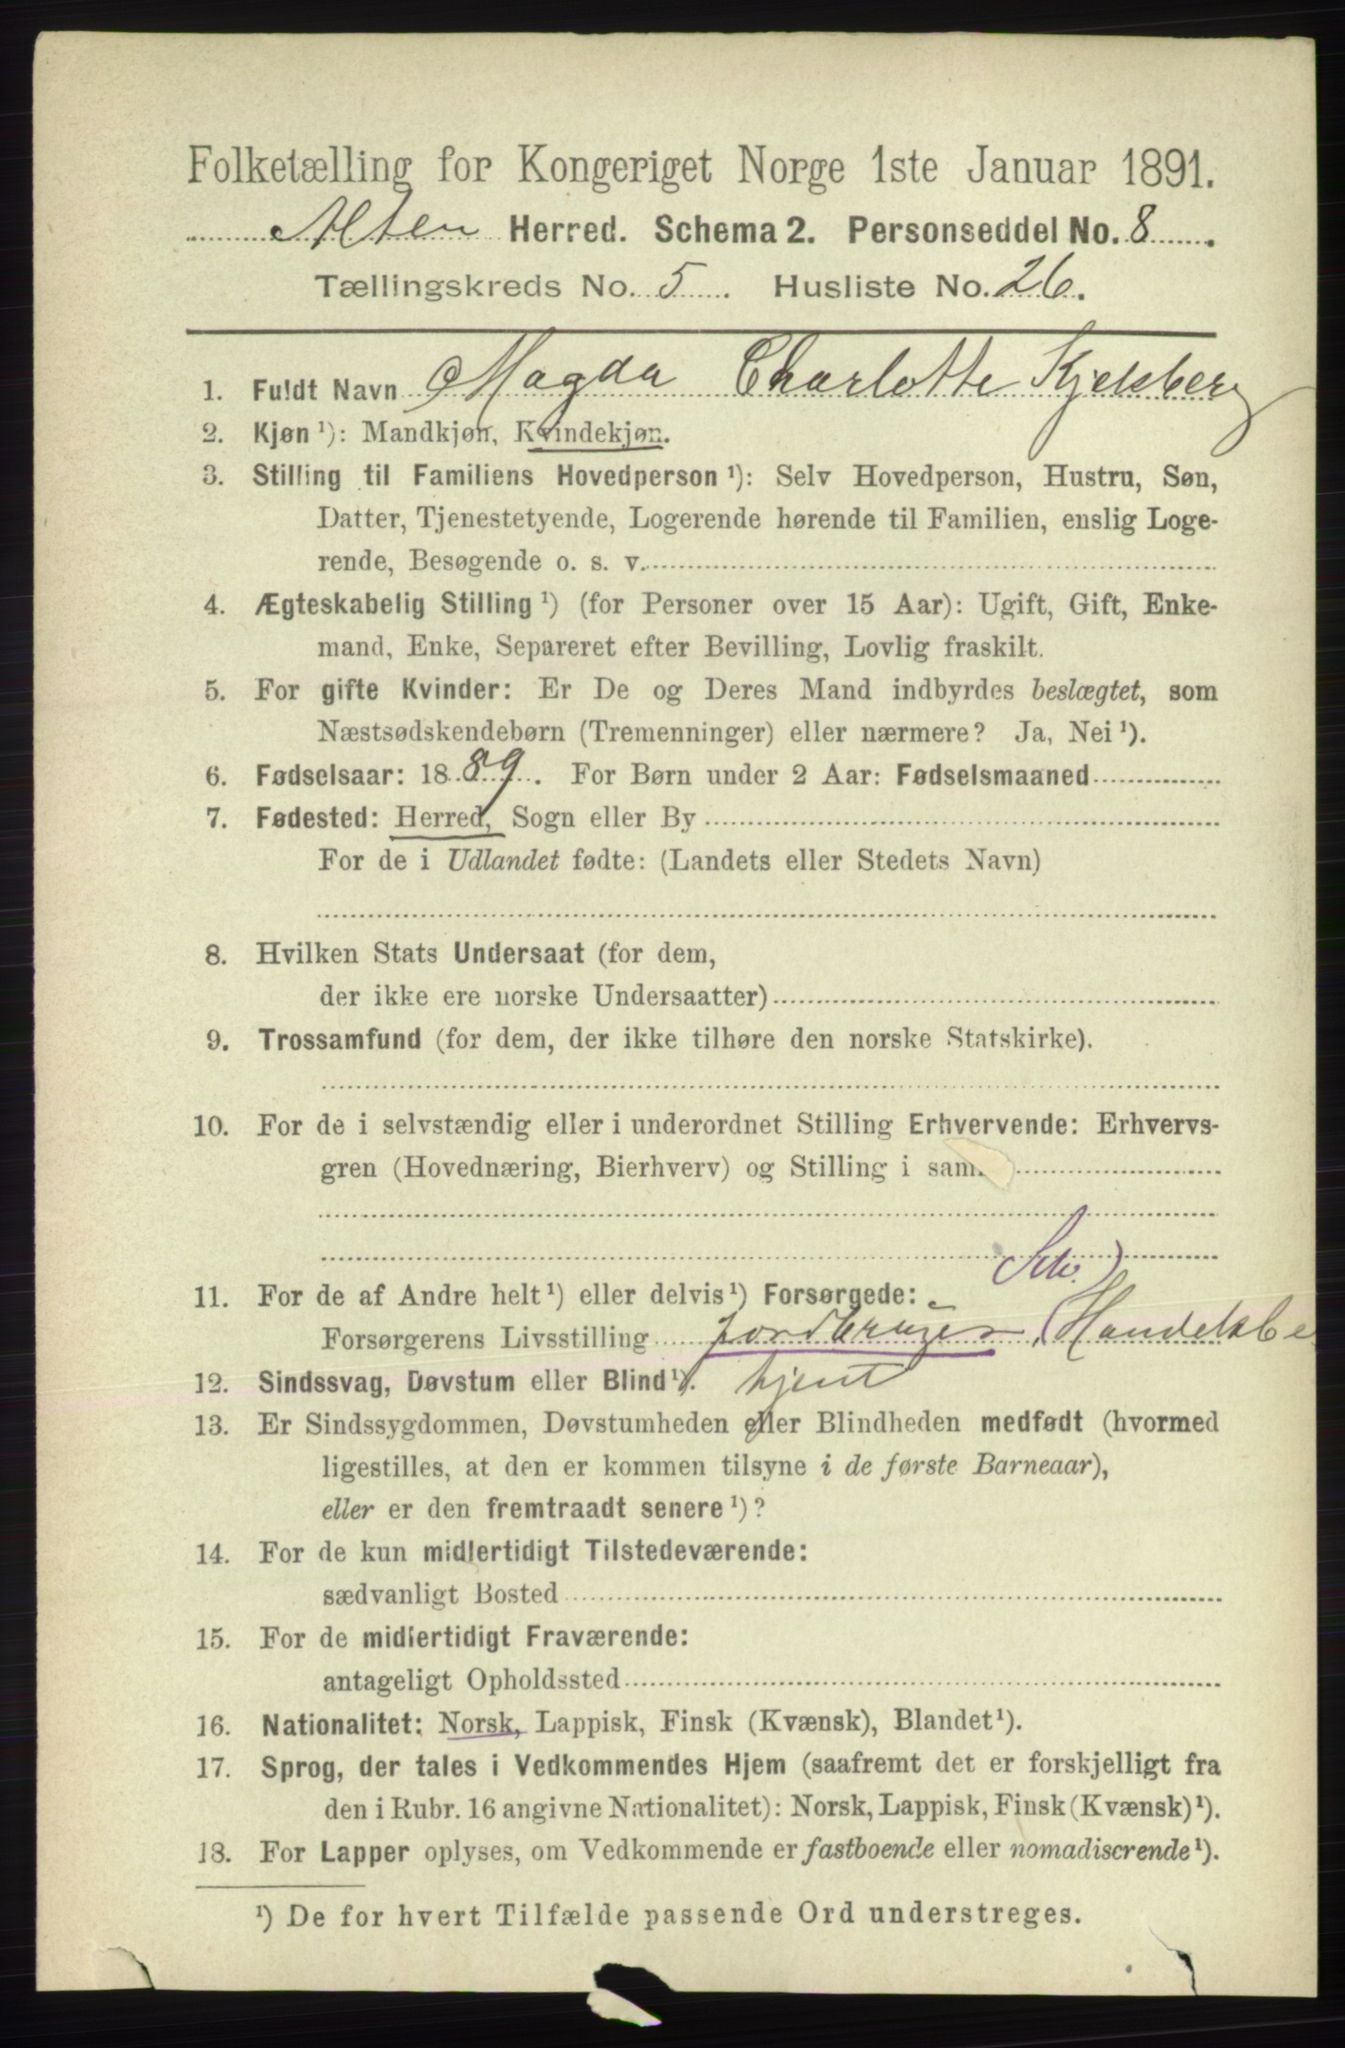 Folketælling for Kongeriget Norge 1ste Januar 1891.
Alten Herred. Schema 2. Personseddel No. 8.
Tællingskreds No. 5. Husliste No. 26.
1. Fuldt Navn Magda Charlotte Kjeldsberg
2. Kjøn¹): Mandkjøn, Kvindekjøn.
3. Stilling til Familiens Hovedperson¹): Selv Hovedperson, Hustru, Søn,
Datter, Tjenestetyende, Logerende hørende til Familien, enslig Loge-
rende, Besøgende o. s. v.
4. Ægteskabelig Stilling¹) (for Personer over 15 Aar): Ugift, Gift, Enke-
mand, Enke, Separeret efter Bevilling, Lovlig fraskilt.
5. For gifte Kvinder: Er De og Deres Mand indbyrdes beslægtet, som
Næstsødskendebørn (Tremenninger) eller nærmere? Ja, Nei¹).
6. Fødselsaar: 1889. For Børn under 2 Aar: Fødselsmaaned
7. Fødested: Herred, Sogn eller By
For de i Udlandet fødte: (Landets eller Stedets Navn)
8. Hvilken Stats Undersaat (for dem,
der ikke ere norske Undersaatter)
9. Trossamfund (for dem, der ikke tilhøre den norske Statskirke).
10. For de i selvstændig eller i underordnet Stilling Erhvervende: Erhvervs-
gren (Hovednæring, Bierhverv) og Stilling i sam
Selv.)
11. For de af Andre helt¹) eller delvis¹) Forsørgede:
Forsørgerens Livsstilling Jordbruger (Handelsbe
tjent
12. Sindssvag, Døvstum eller Blind¹).
13. Er Sindssygdommen, Døvstumheden eller Blindheden medfødt (hvormed
ligestilles, at den er kommen tilsyne i de første Barneaar),
eller er den fremtraadt senere¹)?
14. For de kun midlertidigt Tilstedeværende:
sædvanligt Bosted
15. For de midlertidigt Fraværende:
antageligt Opholdssted
16. Nationalitet: Norsk, Lappisk, Finsk (Kvænsk), Blandet¹).
17. Sprog, der tales i Vedkommendes Hjem (saafremt det er forskjelligt fra
den i Rubr. 16 angivne Nationalitet): Norsk, Lappisk, Finsk (Kvænsk)¹).
18. For Lapper oplyses, om Vedkommende er fastboende eller nomadiserende¹).
¹) De for hvert Tilfælde passende Ord understreges.